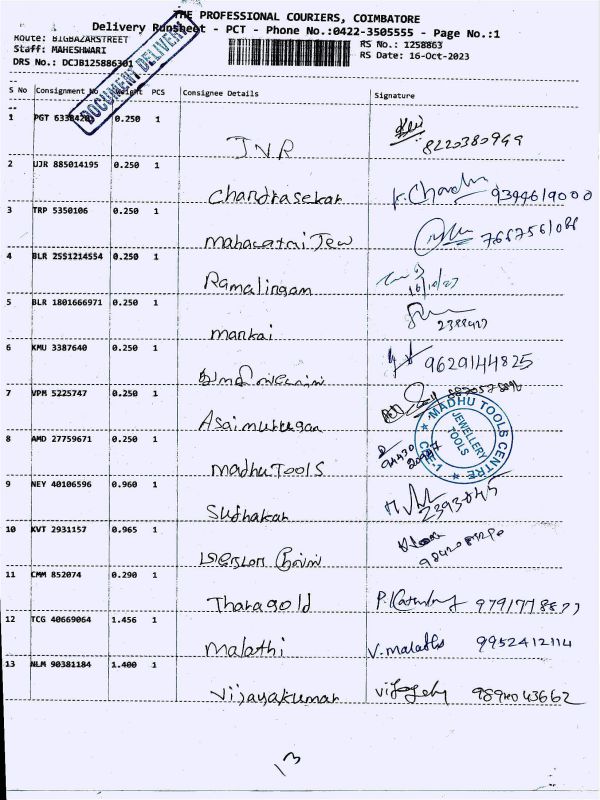 THE PROFESSIONAL COURIERS, COIMBATORE
Delivery Runsheet - PCT - Phone No.:0422-3505555 - Page No.:1
Route: BIGBAZARSTREET
RS No.: 1258863
Staff: MAHESHWARI
RS Date: 16-Oct-2023
DRS No.: DCJB125886301
DOCUMENT DELIVERY
S No Consignment No Weight PCS Consignee Details Signature
1 PGT 0.250 1
JNR 8220380949
2 UJR 885014195 0.250 1
Chandrasekar 9394619000
3 TRP 5350106 0.250 1
mahacatrai Jew
4 BLR 2551214554 0.250 1
Ramalingam
5 BLR 1801666971 0.250 1
mankai 2388427
6 KMU 3387640 0.250 1
9629144825
7 VPM 5225747 0.250 1
Asaimurugan
8 AMD 27759671 0.250 1
madhu TOOLS
MADHU TOOLS CENTRE
JEWELLERY TOOLS
CBE-1
9 NEY 40106596 0.960 1
Sudhakar 2393845
10 KVT 2931157 0.965 1
11 CMM 852074 0.290 1
Tharagold
12 TCG 40669064 1.456 1
Malathi V. malathi 9952412114
13 NLM 90381184 1.400 1
Vijayakumar
13